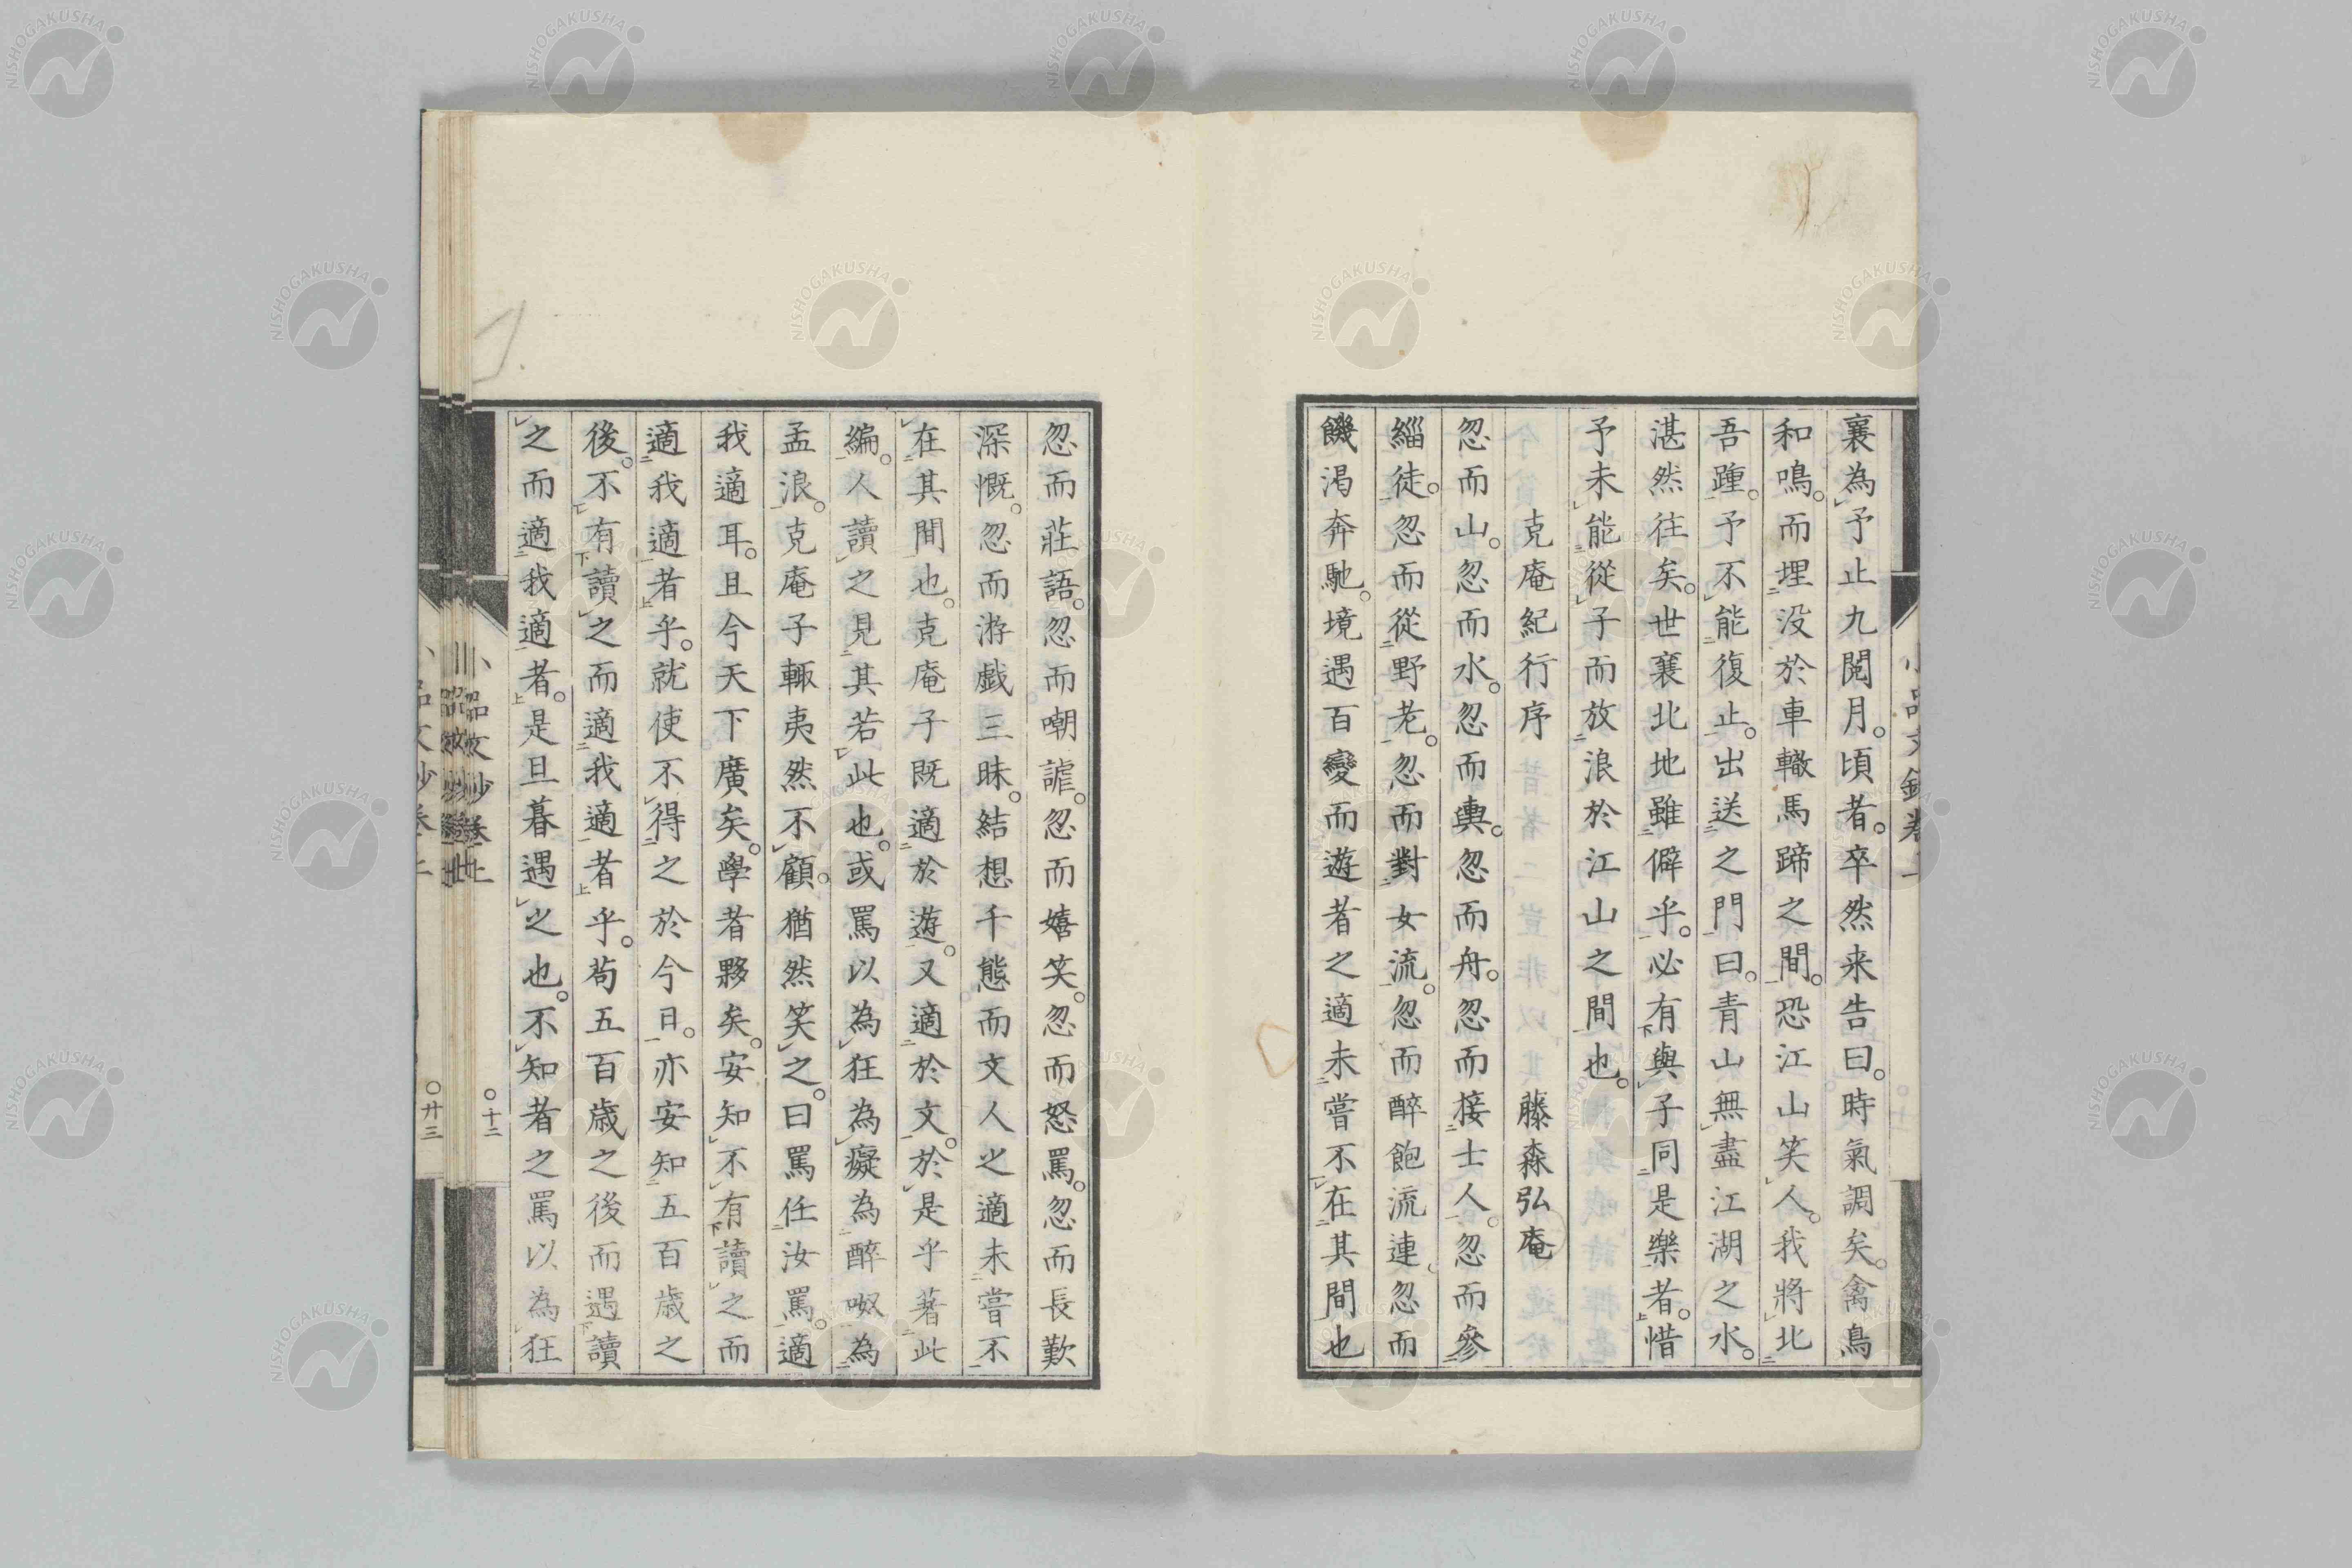 襄為予止九閲月。頃者。卒然来告曰。時氣調矣。禽鳥
和鳴。而埋没於車轍馬蹄之間。恐江山笑人。我將北
吾踵。予不能復止。出送之門。曰。青山無盡江湖之水。
湛然往矣。世襄北地雖僻乎。必有與子同是樂者。惜
予未能從子而放浪於江山之間也。
克庵紀行序 藤森弘庵
忽而山。忽而水。忽而輿。忽而舟。忽而接士人。忽而參
緇徒。忽而從野老。忽而對女流。忽而醉飽流連、忽而
饑渇奔馳。境遇百變而遊者之適未嘗不在其間也
忽而莊語。忽而嘲謔。忽而嬉笑。忽而怒罵。忽而長歎
深慨。忽而游戯三昧。結想千態而文人之適未嘗不
在其間也。克庵子既適於遊。又適於文。於是乎著此
編。人讀之見其若此也。或罵以為狂為癡為醉呶為
孟浪。克庵子輙夷然不顧。猶然笑之。曰罵任汝罵。適
我適耳。且今天下廣矣。學者夥矣。安知不有讀之而
適我適者乎。就使不得之於今日。亦安知五百歳之
後。不有讀之而適我適者乎。苟五百歳之後而遇讀
之而適我適者。是旦暮遇之也。不知者之罵以為狂
小品文鈔卷上
十二
小品文鈔卷上
廿三
NISHOGAKUSHA